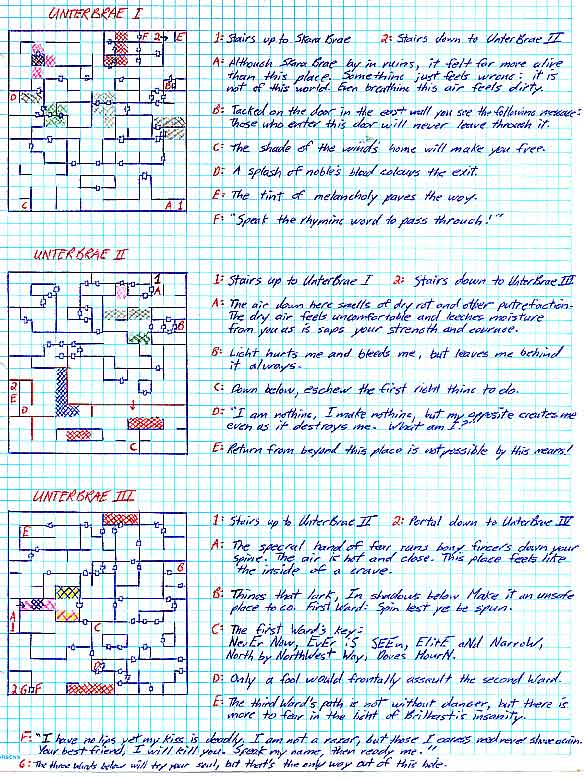 UNTERBRAE I
1: Stairs up to Skara Brae 2: Stairs down to UnterBrae II
A: Although Skara Brae by in ruins, it felt far more alive
than this place. Something just feels wrong: it is
not of this world. Even breathing this air feels dirty.
B: Tacked on the door in the east wall you see the following message:
Those who enter this door will never leave through it.
C: The shade of the home will make you free.
D: A splash of noble's blood colours the exit.
E: The tint of melancholy paves the way.
F: "Speak the rhyming word to pass through!"
F 2 E
B
D
C
A 1
UNTERBRAE II
1: Stairs up to UnterBrae I 2: Stairs down to UnterBrae III
A: The air down here smells of dry rot and other putrefaction.
The dry air feels uncomfortable and leeches moisture
from you as is saps your strength and courage.
B: Light hurts me and bleeds me, but leaves me behind
it always.
C: Down below, eschew the first right thing to do.
D: "I am nothing, I make nothing, but my opposite creates me
even as it destroys me. What am I?"
E: Return from beyond this place is not possible by this means!
1
A
B
2
E
D
C
UNTERBRAE III
1: Stairs up to UnterBrae II 2: Portal down to UnterBrae IV
A: The spectral hand of fear runs bony fingers down your
spine. The air is hot and close. This place feels like
the inside of a grave.
B: Things that lurk, In shadows below Make it an unsafe
place to go. First Ward: Spin lest ye be spun.
C: The first Ward's key:
NevEr Now, EvEr iS SEEn, ElitE aNd NarroW,
North by NorthWest Way, Doves MourN.
D: Only a fool would frontally assault the second Ward.
E: The third Ward's path is not without danger, but there
is more to fear in the light of Brilhasti's insanity.
E
B
A
1
C
D
2 G F
F: "I have no lips yet my kiss is deadly, I am not a razor, but those I caress need never shave again.
Your best friend, I will kill you. Speak my name, then ready me."
G: The three Wards below will try your soul, but that's the only way out of this hole.